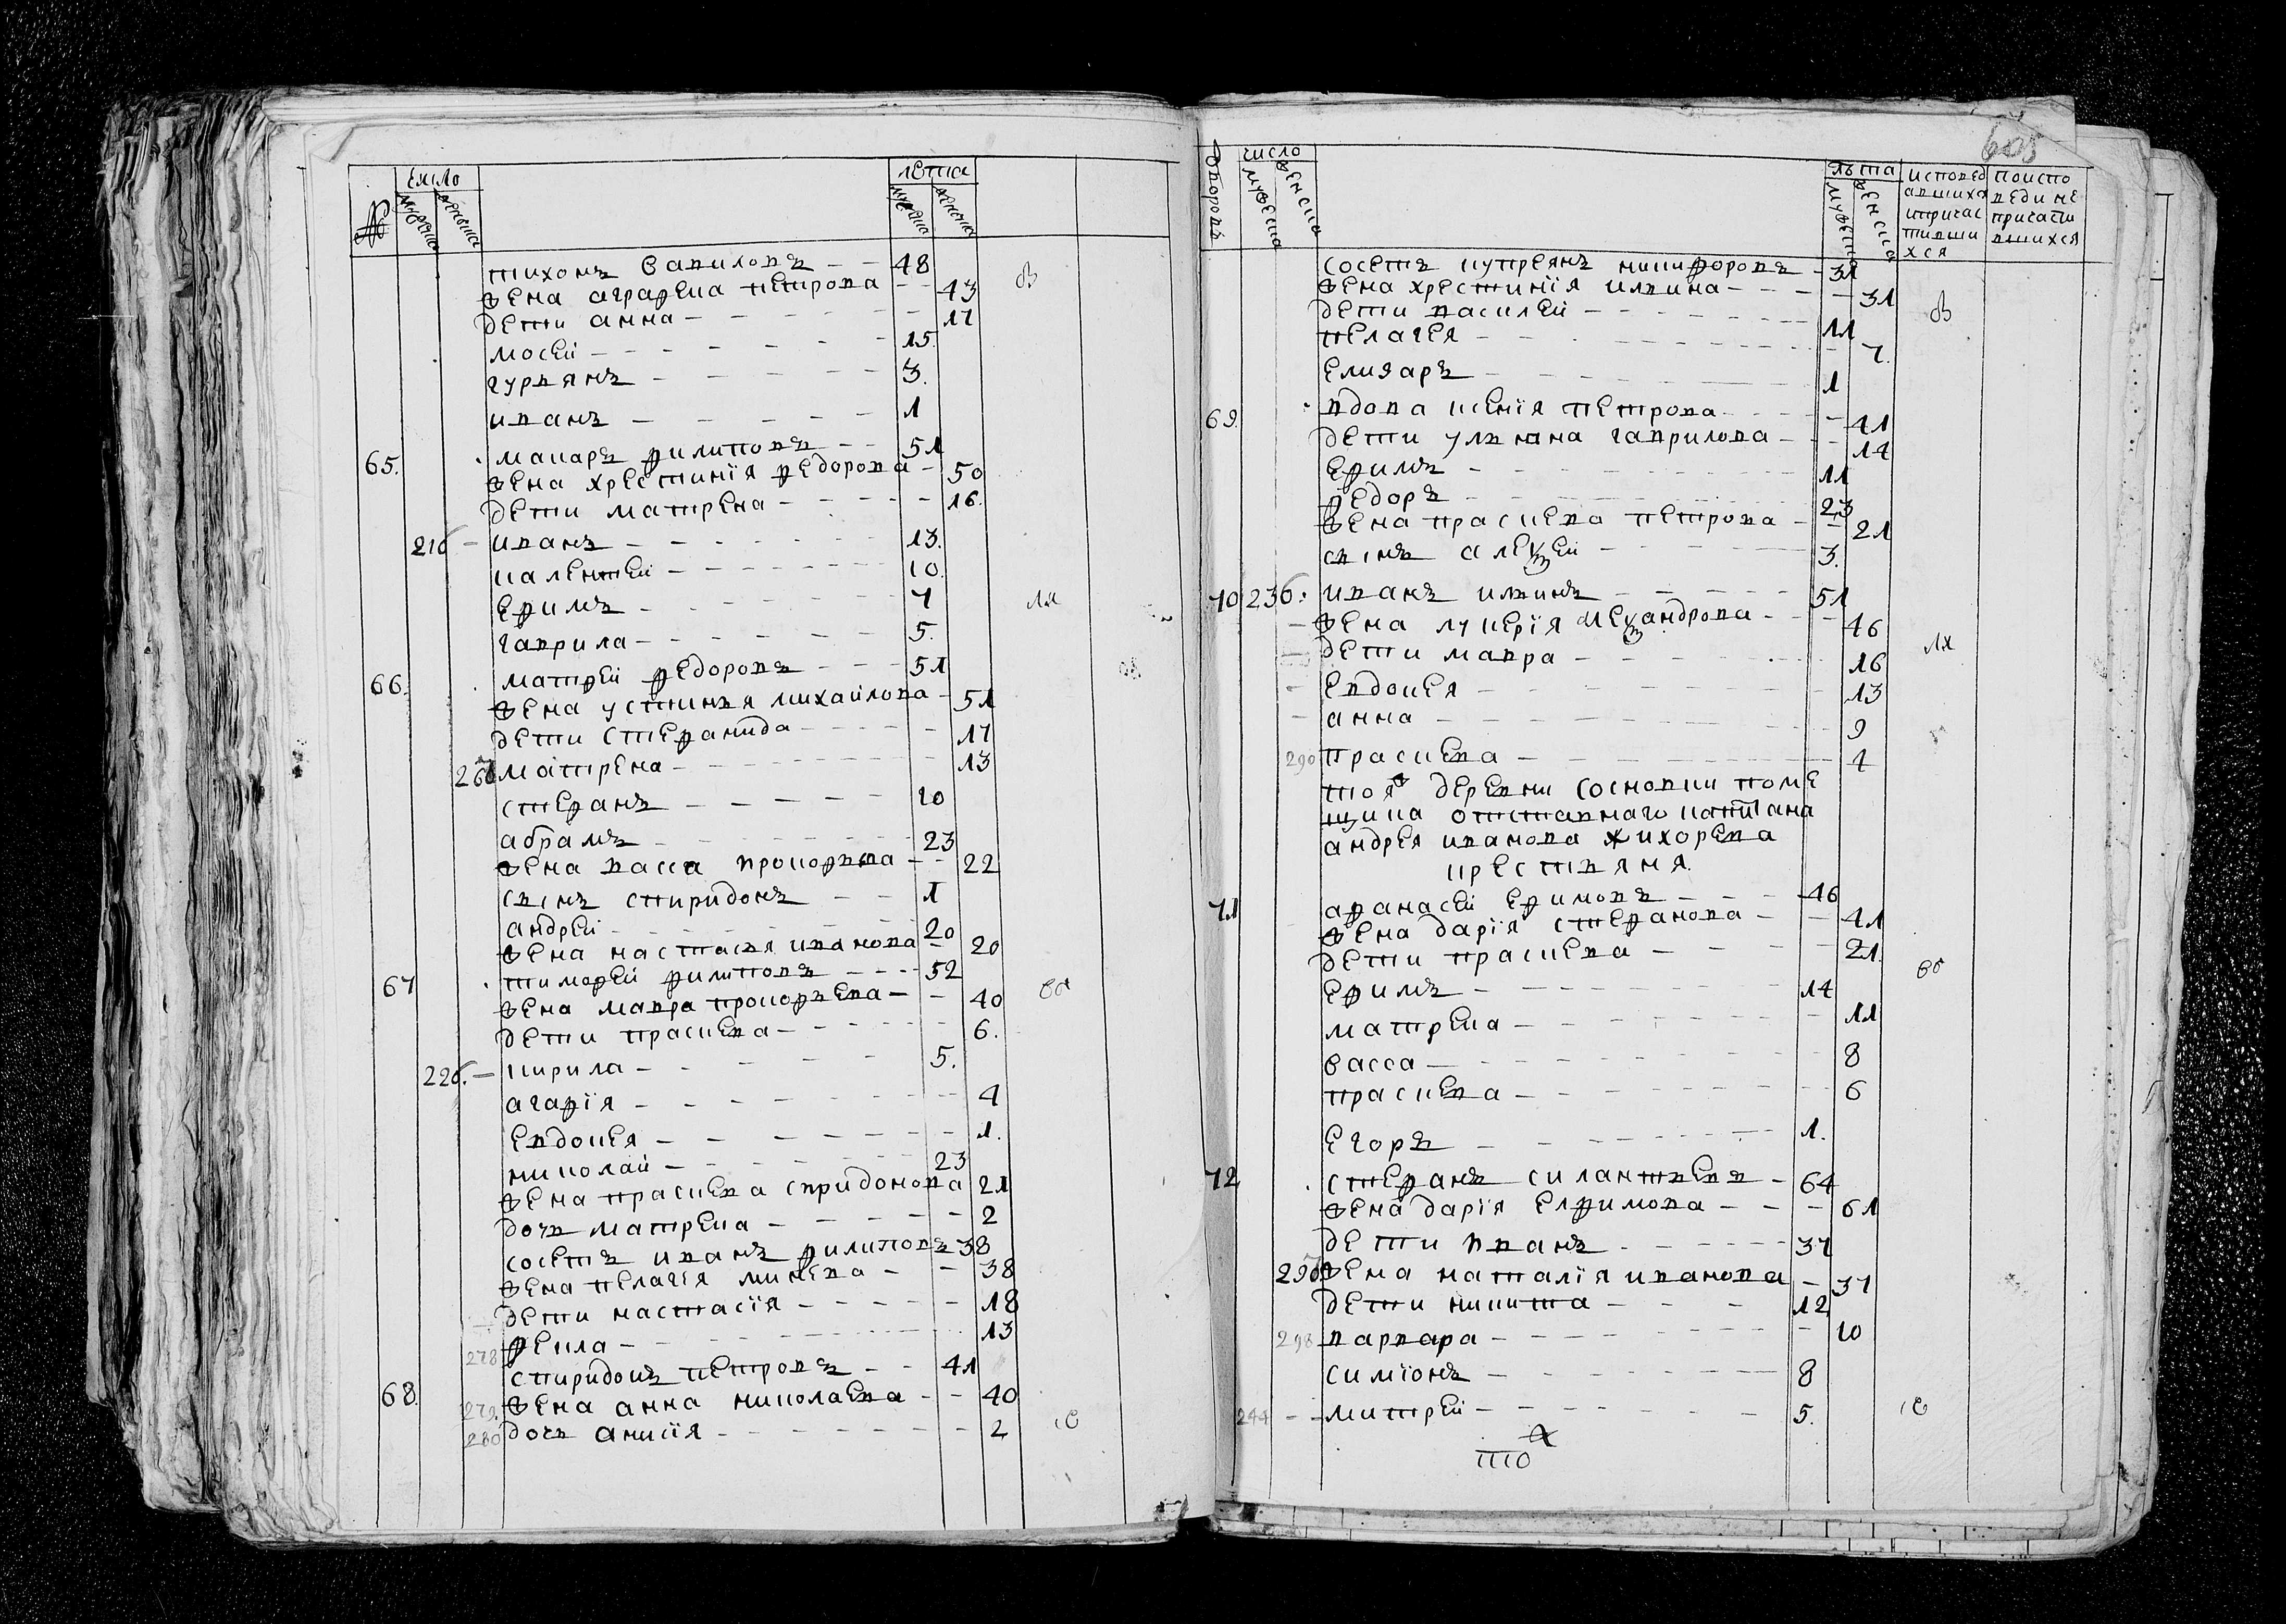 № число лета
мужеска женска мужеска женска
тихонъ вавиловъ - - 48
жена аграфена петрова - - 43
дети анна - - - 17
мосей - - - 15.
гурьянъ - - - 3.
иванъ - - - 1
65. макаръ филиповъ - - 51
жена хрестинїя федорова - 50
дети матрена - - - 16.
216 - иванъ - - - 13.
калентей - - - 10.
ефимъ - - - 7
гаврила - - - 5.
66. матфей федоровъ - - - 51
жена устинья михайлова - 51
дети стефанида - - - 17
267 матрена - - - 13
стефанъ - - - 10
абрамъ - - - 23
жена васса прокофьева - - 22
сынъ спиридонъ - - 1
андрей - - - 20
жена настасья иванова - 20
67 тимофей филиповъ - - - 52
жена мавра прокофьева - - 40
дети прасиева - - - 6.
226. - кирила - - - 5.
агафїя - - - 4
евдокея - - - 1.
николай - - - 23
жена прасиева спридонова 21
дочь матрена - - - 2
сосетъ иванъ филиповъ 38
жена пелагея минеева - - 38
дети настасїя - - - 18
278 фекла - - - 13
68. спиридонъ петровъ - - 41
279. жена анна николаева - - 40
280 дочь анисїя - - - 2
605
дворовъ число лѣта исповед поиспо
мужеска женска мужеска женска авшихс веди не
ипричас причасти
тивши вшихся
хся
сосетъ купреянъ никифоровъ - 31
жена хрестинїя илина - - - 31
дети василей - - - 11
пелагея - - - 7.
елизаръ - - - 1
69. вдова ксенїя петрова - - - 41
дети ульяна гаврилова - - - 14
ефимъ - - - 11
федоръ - - - 23
жена прасиева петрова - - 21
сынъ алеѯей - - - 3.
70 236. иванъ ильинъ - - - 51
жена лукерїя алеѯандрова - - 46
дети мавра - - - 16
евдокея - - - 13
анна - - - 9
290 прасиева - - - 7
тоя деревни сосновки поме
щика отставнаго капитана
андрея иванова жихорева
крестьяня.
71 афанасей ефимовъ - - - 46
жена дарїя стефанова - - 41
дети прасиева - - - 21.
ефимъ - - - 14
матрена - - - 11
васса - - - 8
прасиева - - - 6
егоръ - - - 1.
72 стефанъ силантьевъ - 64
жена дарїя елфимова - - - 61
дети иванъ - - - 37
жена наталїя иванова - 37
дети никита - - - 12
298 варвара - - - 10
симїонъ - - - 8
244 - - митрей - - - 5.